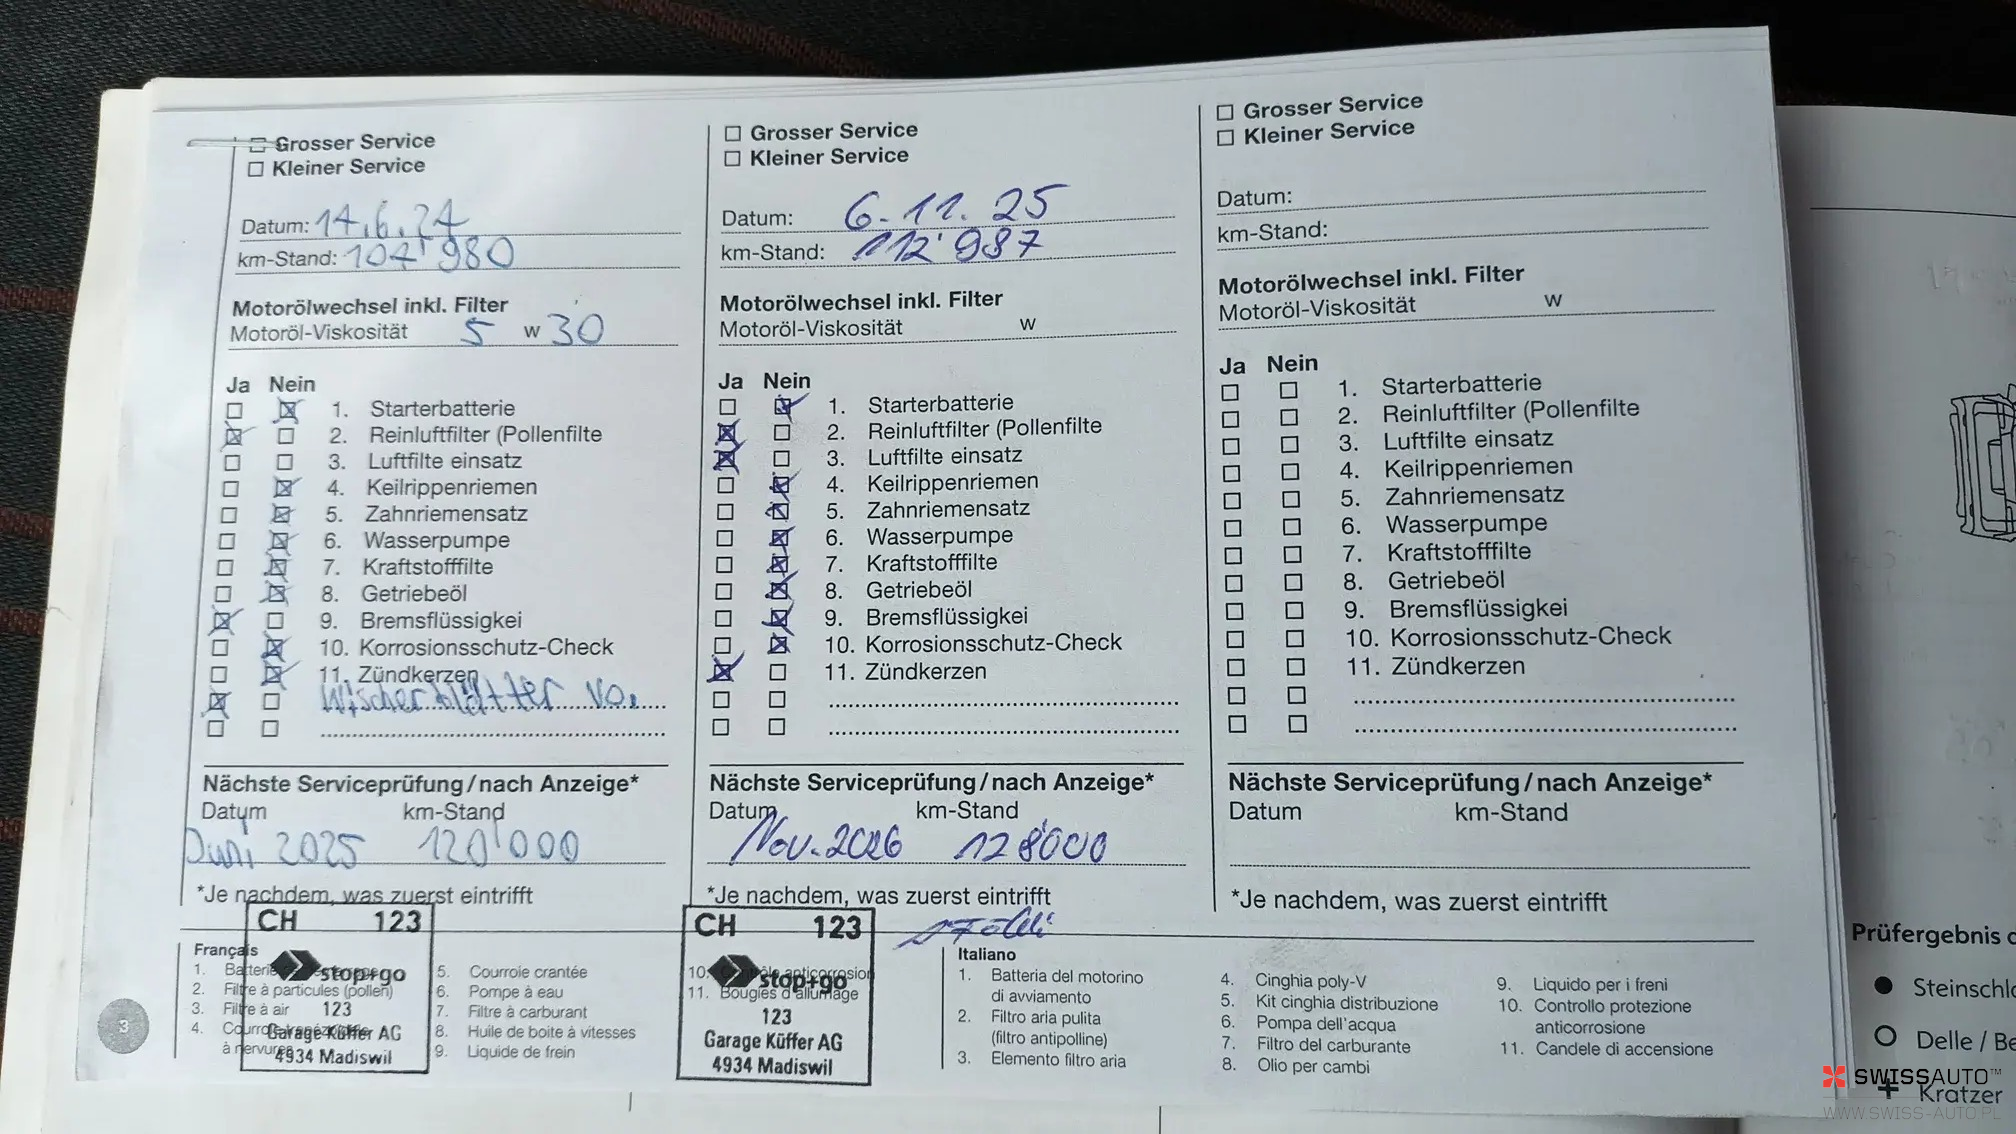 Grosser Service
Kleiner Service
Datum: 14.6.24
km-Stand: 104'980
Motorölwechsel inkl. Filter
Motoröl-Viskosität 5 w 30
Ja Nein
1. Starterbatterie
2. Reinluftfilter (Pollenfilte
3. Luftfilte einsatz
4. Keilrippenriemen
5. Zahnriemensatz
6. Wasserpumpe
7. Kraftstofffilte
8. Getriebeöl
9. Bremsflüssigkei
10. Korrosionsschutz-Check
11. Zündkerzen
Wischerblätter vo.
Nächste Serviceprüfung/nach Anzeige*
Datum km-Stand
Juni 2025 120'000
*Je nachdem, was zuerst eintrifft
Grosser Service
Kleiner Service
Datum: 6.11.25
km-Stand: 112'987
Motorölwechsel inkl. Filter
Motoröl-Viskosität w
Ja Nein
1. Starterbatterie
2. Reinluftfilter (Pollenfilte
3. Luftfilte einsatz
4. Keilrippenriemen
5. Zahnriemensatz
6. Wasserpumpe
7. Kraftstofffilte
8. Getriebeöl
9. Bremsflüssigkei
10. Korrosionsschutz-Check
11. Zündkerzen
Nächste Serviceprüfung/nach Anzeige*
Datum km-Stand
Nov. 2026 128'000
*Je nachdem, was zuerst eintrifft
Grosser Service
Kleiner Service
Datum:
km-Stand:
Motorölwechsel inkl. Filter
Motoröl-Viskosität w
Ja Nein
1. Starterbatterie
2. Reinluftfilter (Pollenfilte
3. Luftfilte einsatz
4. Keilrippenriemen
5. Zahnriemensatz
6. Wasserpumpe
7. Kraftstofffilte
8. Getriebeöl
9. Bremsflüssigkei
10. Korrosionsschutz-Check
11. Zündkerzen
Nächste Serviceprüfung/nach Anzeige*
Datum km-Stand
*Je nachdem, was zuerst eintrifft
CH 123
stop+go
123
Garage Küffer AG
4934 Madiswil
CH 123
stop+go
123
Garage Küffer AG
4934 Madiswil
3
Français
1. Batterie
2. Filtre à particules (pollen)
3. Filtre à air
4.
à nervures
5. Courroie crantée
6. Pompe à eau
7. Filtre à carburant
8. Huile de boite à vitesses
9. Liquide de frein
10. Contrôle anticorrosion
11. Bougies d'allumage
Italiano
1. Batteria del motorino
di avviamento
2. Filtro aria pulita
(filtro antipolline)
3. Elemento filtro aria
4. Cinghia poly-V
5. Kit cinghia distribuzione
6. Pompa dell'acqua
7. Filtro del carburante
8. Olio per cambi
9. Liquido per i freni
10. Controllo protezione
anticorrosione
11. Candele di accensione
Prüfergebnis
Steinschl
Delle / Be
Kratzer
SWISSAUTO™
WWW.SWISS-AUTO.PL